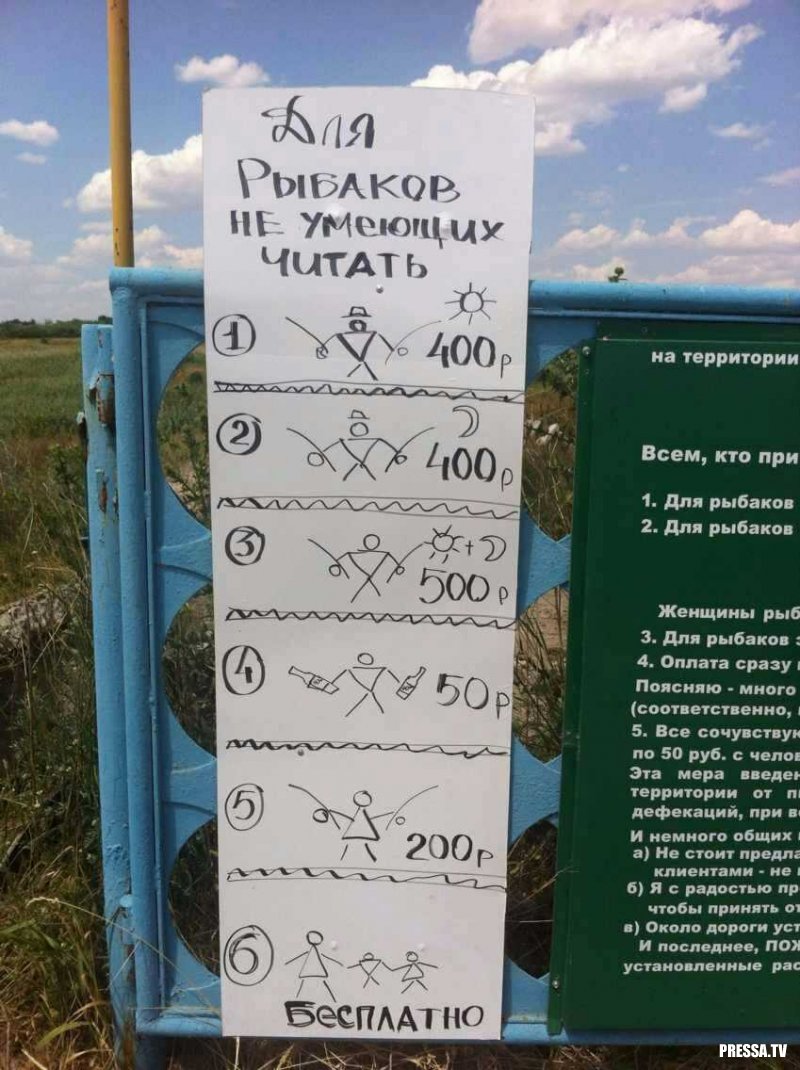 Для
РЫБАКОВ
НЕ УМЕЮЩИХ
ЧИТАТЬ
1 400р
2 400р
3 + 500р
4 50р
5 200р
6
БЕСПЛАТНО
на территории
Всем, кто при
1. Для рыбаков
2. Для рыбаков
Женщины рыб
3. Для рыбаков з
4. Оплата сразу
Поясняю - много
(соответственно,
5. Все сочувствую
по 50 руб. с челов
Эта мера введен
территории от
дефекаций, при
И немного общих
а) Не стоит предла
клиентами - не
б) Я с радостью пр
чтобы принять от
в) Около дороги уст
И последнее, ПОЖ
установленные рас
PRESSA.TV